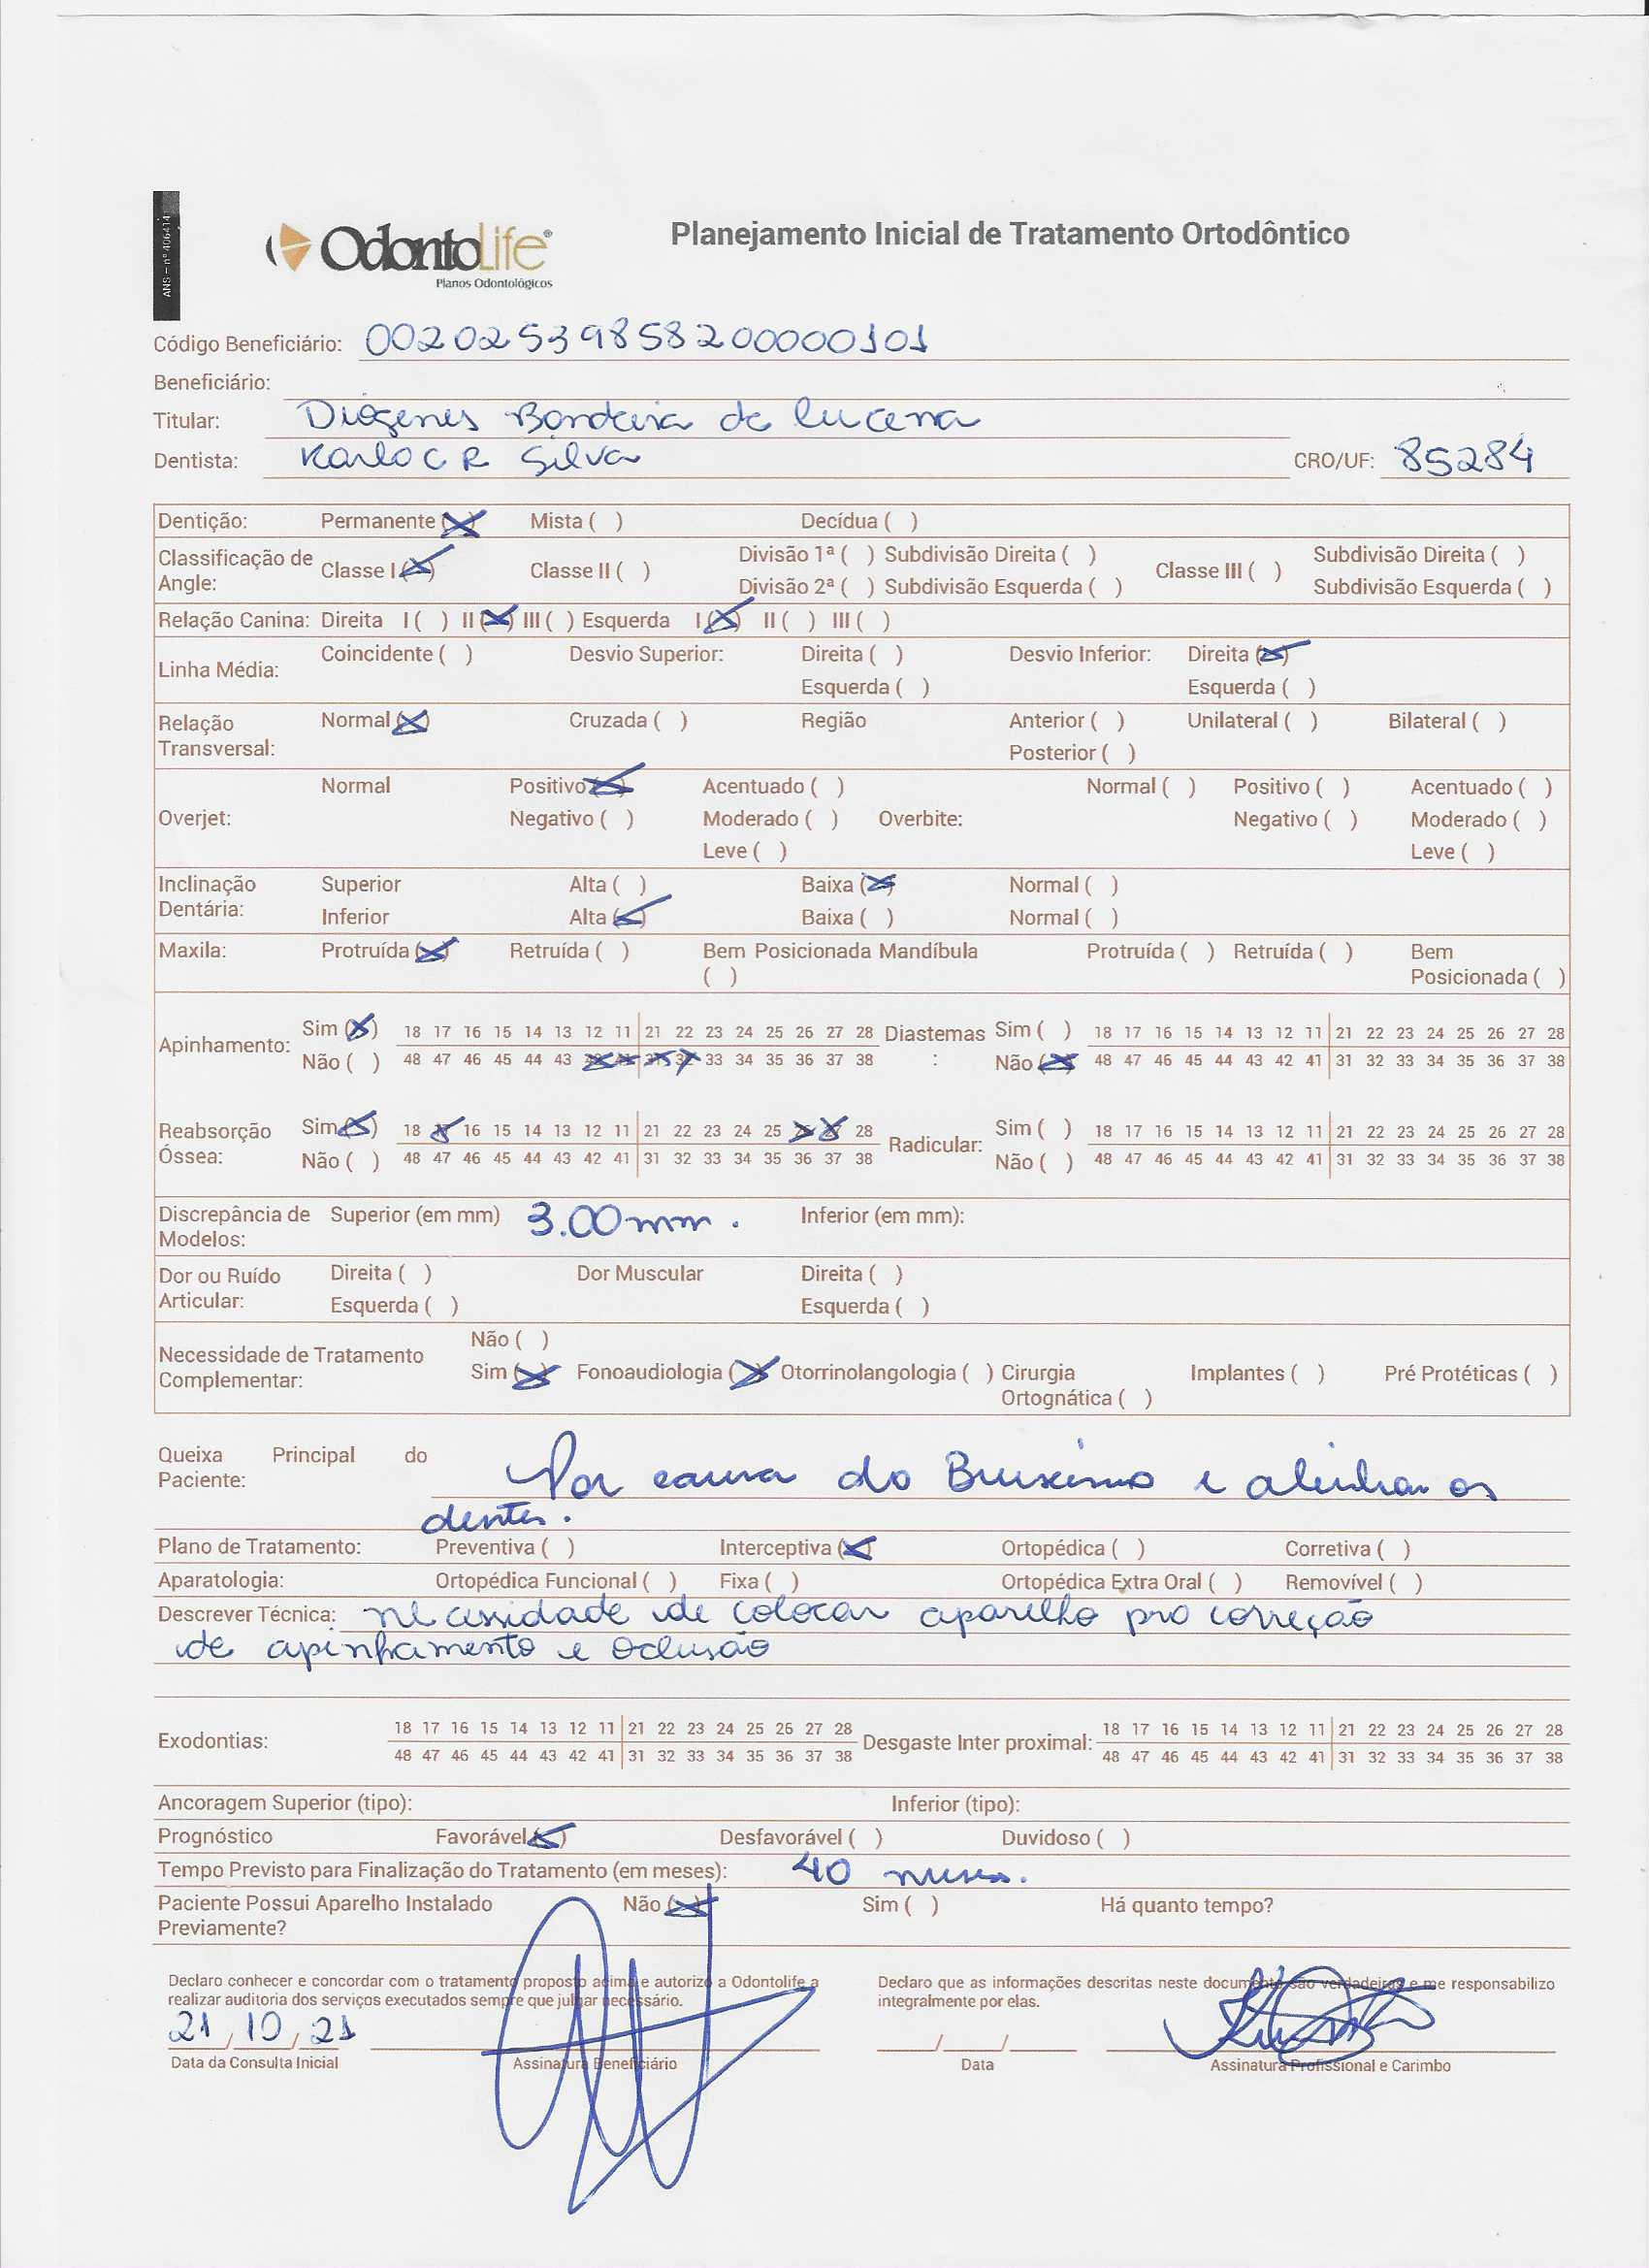 ANS – nº 406414
OdontoLife®
Planos Odontológicos
Planejamento Inicial de Tratamento Ortodôntico
Código Beneficiário: 00202539858200000101
Beneficiário:
Titular: Diógenes Bandeira de Lucena
Dentista: Karlo C R Silva CRO/UF: 85284
Dentição: Permanente (X) Mista ( ) Decídua ( )
Classificação de Angle: Classe I (X) Classe II ( ) Divisão 1ª ( ) Subdivisão Direita ( ) Classe III ( ) Subdivisão Direita ( )
Divisão 2ª ( ) Subdivisão Esquerda ( ) Subdivisão Esquerda ( )
Relação Canina: Direita I ( ) II (X) III ( ) Esquerda I (X) II ( ) III ( )
Linha Média: Coincidente ( ) Desvio Superior: Direita ( ) Desvio Inferior: Direita (X)
Esquerda ( ) Esquerda ( )
Relação Transversal: Normal (X) Cruzada ( ) Região Anterior ( ) Unilateral ( ) Bilateral ( )
Posterior ( )
Normal Positivo (X) Acentuado ( ) Normal ( ) Positivo ( ) Acentuado ( )
Overjet: Negativo ( ) Moderado ( ) Overbite: Negativo ( ) Moderado ( )
Leve ( ) Leve ( )
Inclinação Dentária: Superior Alta ( ) Baixa (X) Normal ( )
Inferior Alta (X) Baixa ( ) Normal ( )
Maxila: Protruída (X) Retruída ( ) Bem Posicionada ( ) Mandíbula Protruída ( ) Retruída ( ) Bem Posicionada ( )
Apinhamento: Sim (X) 18 17 16 15 14 13 12 11 21 22 23 24 25 26 27 28 Diastemas : Sim ( ) 18 17 16 15 14 13 12 11 21 22 23 24 25 26 27 28
Não ( ) 48 47 46 45 44 43 42 41 31 32 33 34 35 36 37 38 Não (X) 48 47 46 45 44 43 42 41 31 32 33 34 35 36 37 38
Reabsorção Óssea: Sim (X) 18 17 16 15 14 13 12 11 21 22 23 24 25 26 27 28 Radicular: Sim ( ) 18 17 16 15 14 13 12 11 21 22 23 24 25 26 27 28
Não ( ) 48 47 46 45 44 43 42 41 31 32 33 34 35 36 37 38 Não ( ) 48 47 46 45 44 43 42 41 31 32 33 34 35 36 37 38
Discrepância de Modelos: Superior (em mm) 3.00 mm. Inferior (em mm):
Dor ou Ruído Articular: Direita ( ) Dor Muscular Direita ( )
Esquerda ( ) Esquerda ( )
Não ( )
Necessidade de Tratamento Complementar: Sim (X) Fonoaudiologia (X) Otorrinolangologia ( ) Cirurgia Ortognática ( ) Implantes ( ) Pré Protéticas ( )
Queixa Principal do Paciente: Por causa do Bruxismo e alinhar os
dentes.
Plano de Tratamento: Preventiva ( ) Interceptiva (X) Ortopédica ( ) Corretiva ( )
Aparatologia: Ortopédica Funcional ( ) Fixa ( ) Ortopédica Extra Oral ( ) Removível ( )
Descrever Técnica: necessidade de colocar aparelho pro correção
de apinhamento e oclusão
Exodontias: 18 17 16 15 14 13 12 11 21 22 23 24 25 26 27 28 Desgaste Inter proximal: 18 17 16 15 14 13 12 11 21 22 23 24 25 26 27 28
48 47 46 45 44 43 42 41 31 32 33 34 35 36 37 38 48 47 46 45 44 43 42 41 31 32 33 34 35 36 37 38
Ancoragem Superior (tipo): Inferior (tipo):
Prognóstico Favorável (X) Desfavorável ( ) Duvidoso ( )
Tempo Previsto para Finalização do Tratamento (em meses): 40 meses.
Paciente Possui Aparelho Instalado Previamente? Não (X) Sim ( ) Há quanto tempo?
Declaro conhecer e concordar com o tratamento proposto acima e autorizo a Odontolife a
realizar auditoria dos serviços executados sempre que julgar necessário.
Declaro que as informações descritas neste documento são verdadeiras e me responsabilizo
integralmente por elas.
21/10/21 / /
Data da Consulta Inicial Assinatura Beneficiário Data Assinatura Profissional e Carimbo